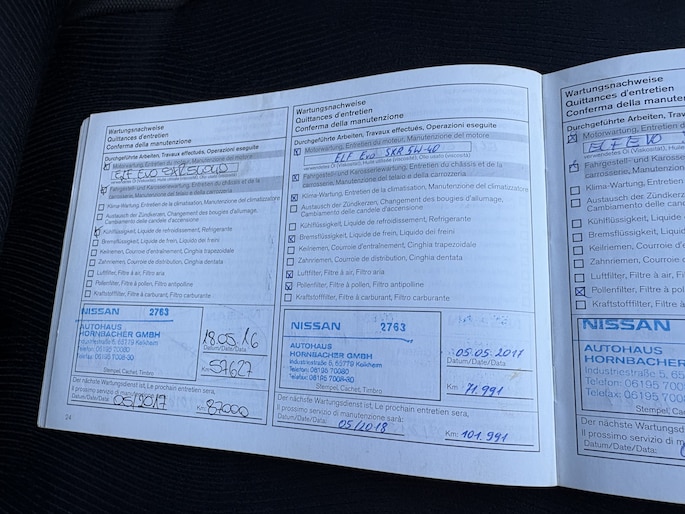 Wartungsnachweise
Quittances d'entretien
Conferma della manutenzione
Durchgeführte Arbeiten, Travaux effectués, Operazioni eseguite
Motorwartung, Entretien du moteur, Manutenzione del motore
ELF EVO
Fahrgestell- und Karosseriewartung, Entretien du châssis et de la
carrosserie, Manutenzione del telaio e della carrozzeria
Klima-Wartung, Entretien de la climatisation, Manutenzione del climatizzatore
Austausch der Zündkerzen, Changement des bougies d'allumage,
Cambiamento delle candele d'accensione
Kühlflüssigkeit, Liquide de refroidissement, Refrigerante
Bremsflüssigkeit, Liquide de frein, Liquido dei freini
Keilriemen, Courroie d'entraînement, Cinghia trapezoidale
Zahnriemen, Courroie de distribution, Cinghia dentata
Luftfilter, Filtre à air, Filtro aria
Pollenfilter, Filtre à pollen, Filtro antipolline
Kraftstofffilter, Filtre à carburant, Filtro carburante
NISSAN 2763
AUTOHAUS
HORNBACHER GMBH
Industriestraße 5, 65779 Kelkheim
Telefon: 06195 70080
Telefax: 06195 7008-30
Stempel, Cachet, Timbro
18.05.16
Datum/Date/Data
Km: 57627
Der nächste Wartungsdienst ist, Le prochain entretien sera,
Il prossimo servizio di manutenzione sarà:
Datum/Date/Data: 05/2017 Km: 87000
24
Wartungsnachweise
Quittances d'entretien
Conferma della manutenzione
Durchgeführte Arbeiten, Travaux effectués, Operazioni eseguite
Motorwartung, Entretien du moteur, Manutenzione del motore
ELF Evo SXR 5W-40
verwendetes Öl (Viskosität), Huile utilisée (viscosité), Olio usato (viscosità)
Fahrgestell- und Karosseriewartung, Entretien du châssis et de la
carrosserie, Manutenzione del telaio e della carrozzeria
Klima-Wartung, Entretien de la climatisation, Manutenzione del climatizzatore
Austausch der Zündkerzen, Changement des bougies d'allumage,
Cambiamento delle candele d'accensione
Kühlflüssigkeit, Liquide de refroidissement, Refrigerante
Bremsflüssigkeit, Liquide de frein, Liquido dei freini
Keilriemen, Courroie d'entraînement, Cinghia trapezoidale
Zahnriemen, Courroie de distribution, Cinghia dentata
Luftfilter, Filtre à air, Filtro aria
Pollenfilter, Filtre à pollen, Filtro antipolline
Kraftstofffilter, Filtre à carburant, Filtro carburante
NISSAN 2763
AUTOHAUS
HORNBACHER GMBH
Industriestraße 5, 65779 Kelkheim
Telefon: 06195 70080
Telefax: 06195 7008-30
Stempel, Cachet, Timbro
05.05.2017
Datum/Date/Data
Km: 71.991
Der nächste Wartungsdienst ist, Le prochain entretien sera,
Il prossimo servizio di manutenzione sarà:
Datum/Date/Data: 05/2018 Km: 101.991
Wartungsnachweise
Quittances d'entretien
Conferma della manuten
Durchgeführte Arbeiten, Trava
Motorwartung, Entretien d
ELF EVO
verwendetes Öl (Viskosität), Huile
Fahrgestell- und Karosse
carrosserie, Manutenzion
Klima-Wartung, Entretien
Austausch der Zündkerz
Cambiamento delle cand
Kühlflüssigkeit, Liquide
Bremsflüssigkeit, Liquid
Keilriemen, Courroie d'
Zahnriemen, Courroie d
Luftfilter, Filtre à air, F
Pollenfilter, Filtre à po
Kraftstofffilter, Filtre à
NISSAN
AUTOHAUS
HORNBACHER
Industriestraße 5, 65
Telefon: 06195 7
Telefax: 06195 7
Stempel, Cach
Der nächste Wartungsd
Il prossimo servizio di m
Datum/Date/Data: